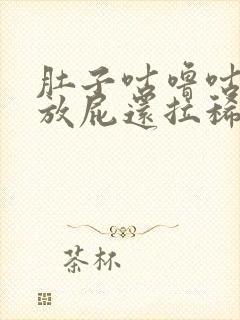 肚子咕嚕咕
放屁還拉稀
茶杯